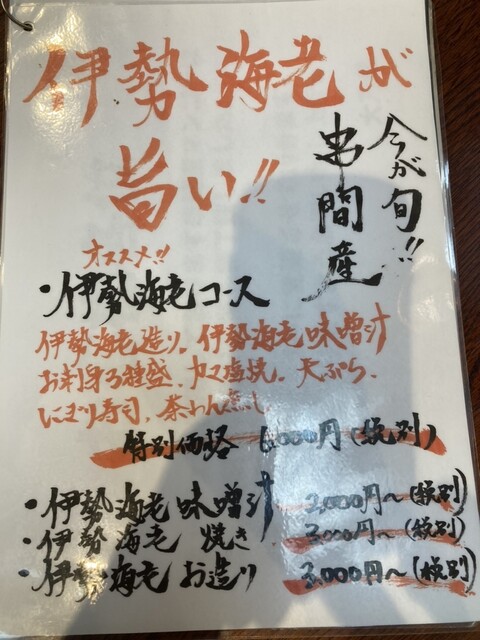 伊勢海老が
旨い!!
今が旬!!
串間産
オススメ!!
・伊勢海老コース
伊勢海老造り。伊勢海老味噌汁
お刺身3種盛、カマ塩焼。天ぷら、
にぎり寿司、茶わん蒸し
特別価格 6,000円(税別)
・伊勢海老味噌汁 2,000円〜(税別)
・伊勢海老焼き 3,000円〜(税別)
伊勢海老お造り 3,000円〜(税別)